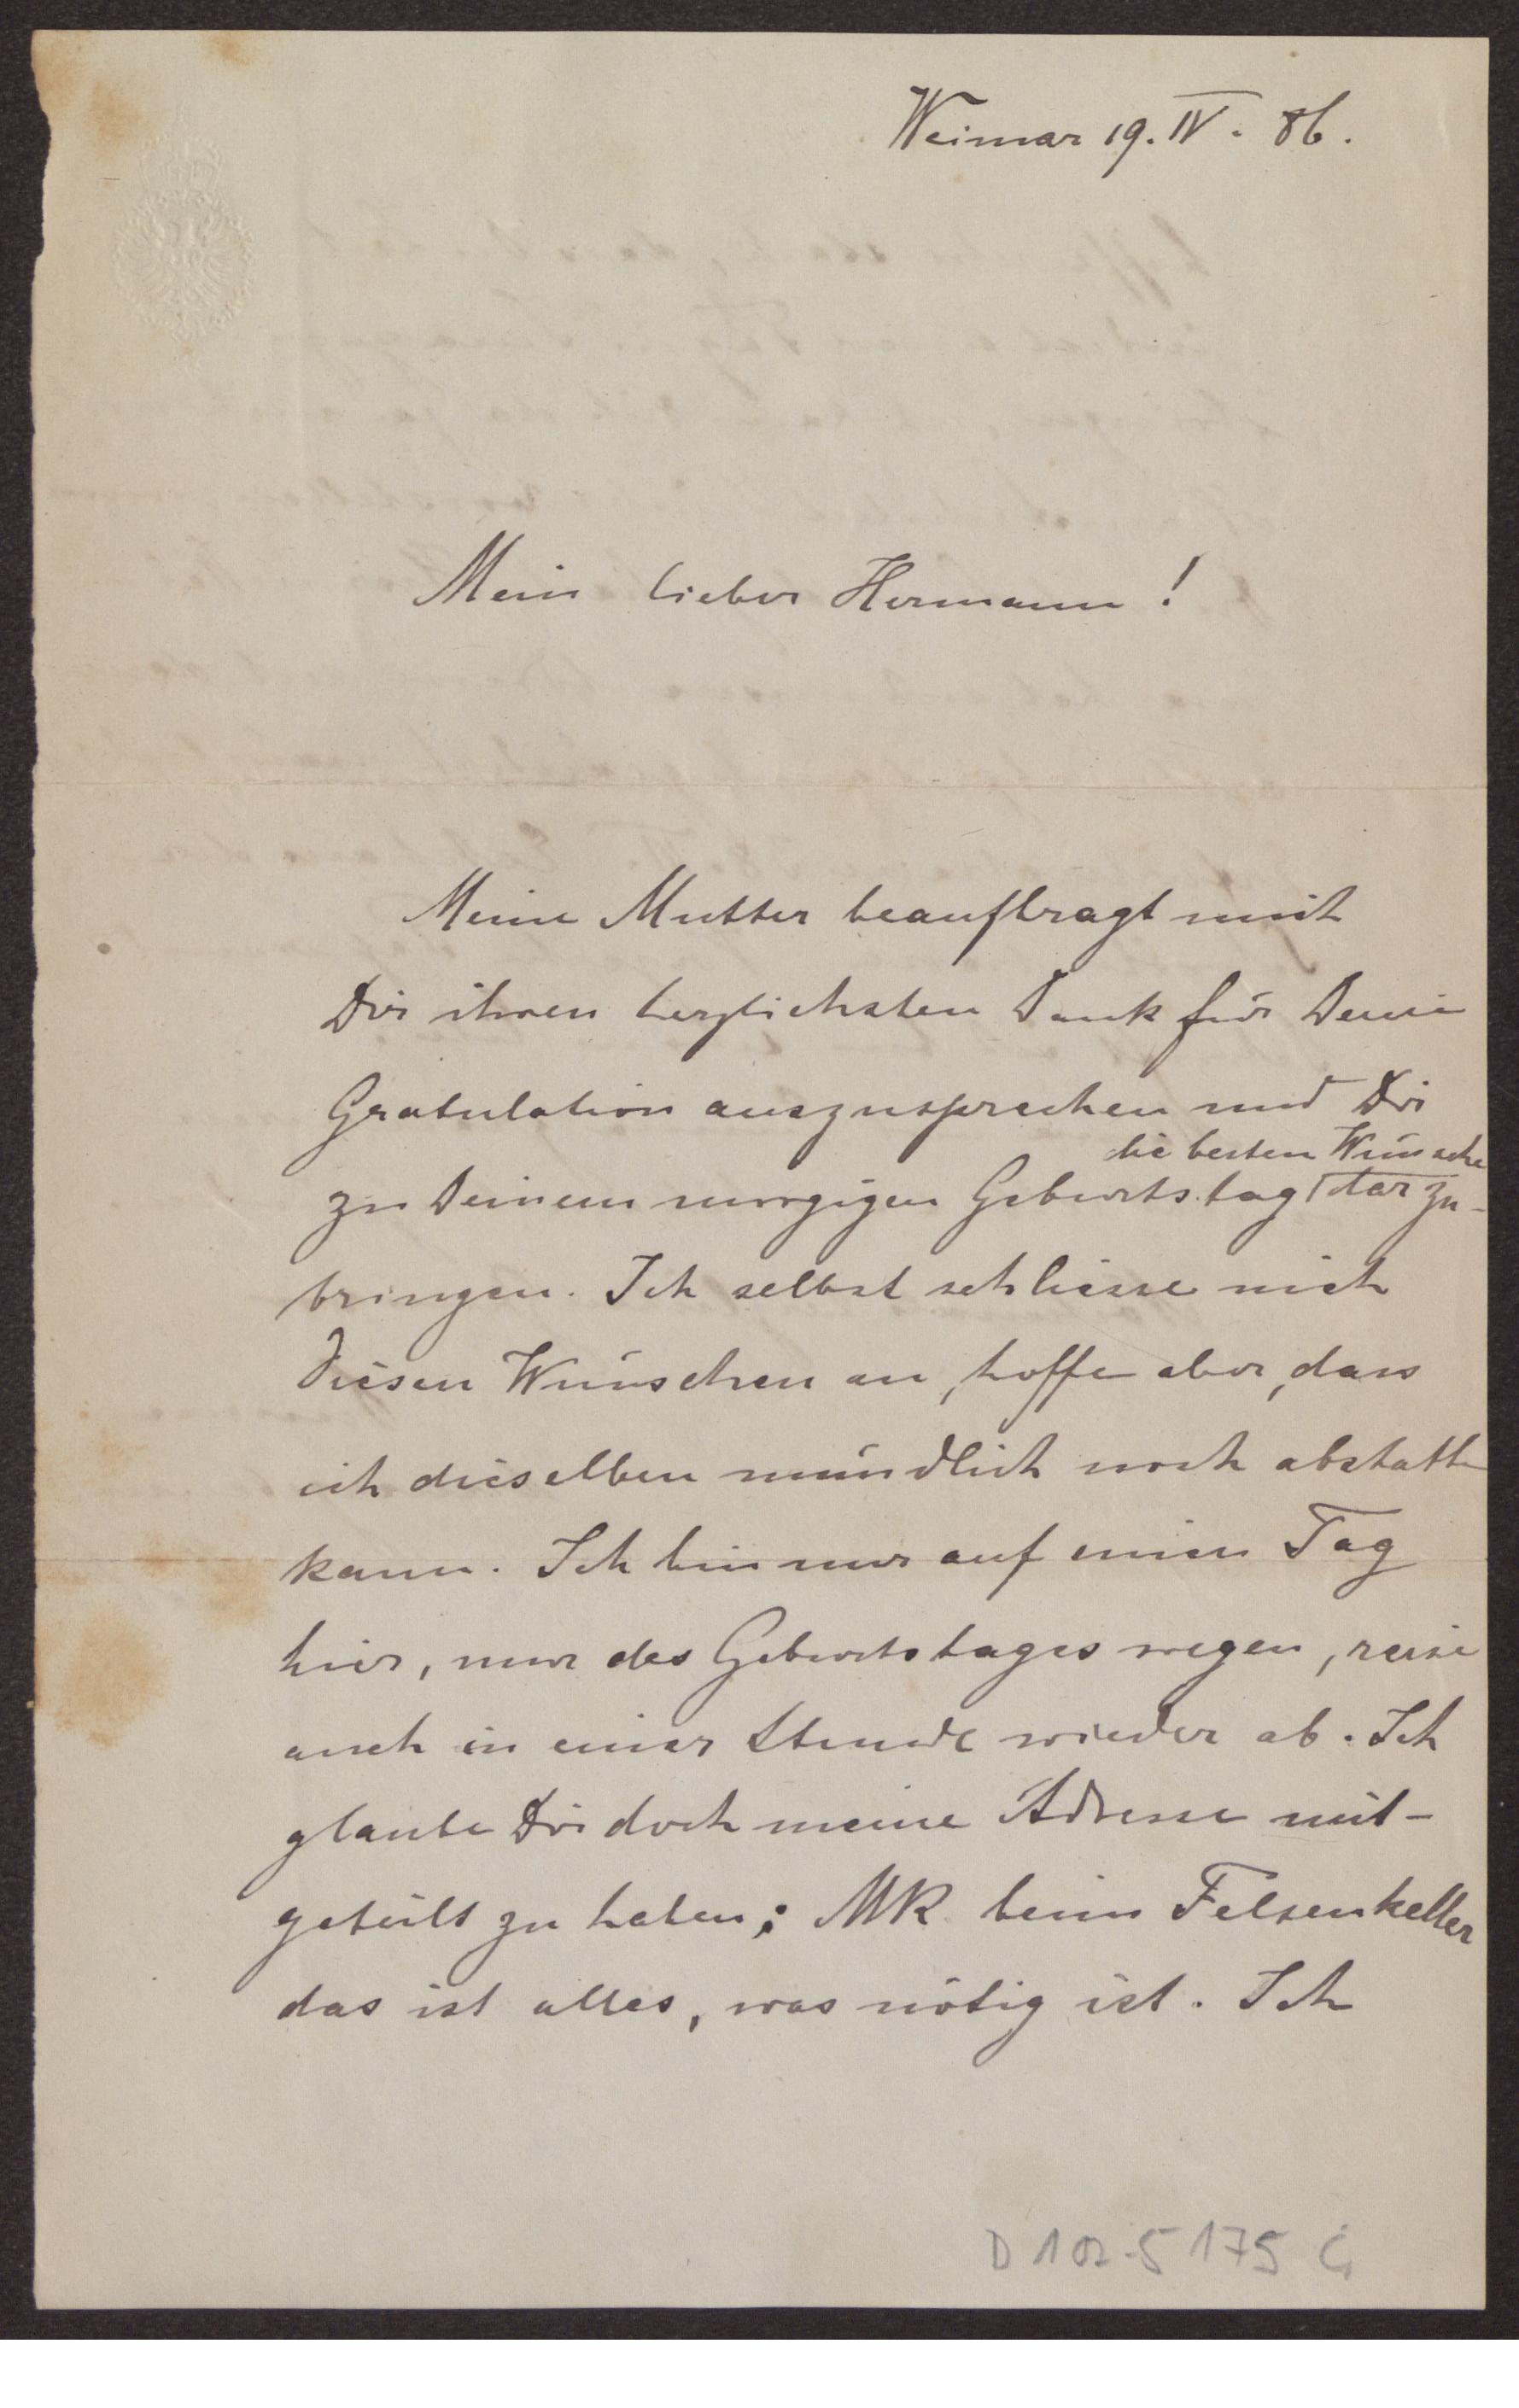 Weimar 19. IV. 86.
Mein lieber Hermann!
Meine Mutter beauftragt mich
Dir ihren herzlichsten Dank für Deine
Gratulation auszusprechen und Dir
die besten Wünsche
zu Deinem morgigen Geburtstag darzu-
bringen. Ich selbst schliesse mich
diesen Wünschen an, hoffe aber, dass
ich dieselben mündlich noch abstatten
kann. Ich bin nur auf einen Tag
hier, nur des Geburtstages wegen, reise
auch in einer Stunde wieder ab. Ich
glaube Dir doch meine Adresse mit-
geteilt zu haben; MR beim Felsenkeller
das ist alles, was nötig ist. Ich
D 102-5175